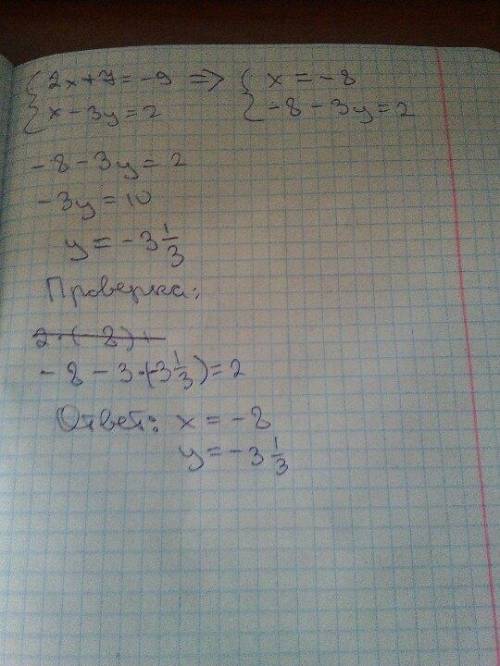 { 2x+7=-9 => { x=-8
{ x-3y=2 { -8-3y=2
-8-3y=2
-3y=10
y=-3 1/3
Проверка:
2·(-8)+
-8-3·(-3 1/3)=2
Ответ: x=-8
y=-3 1/3